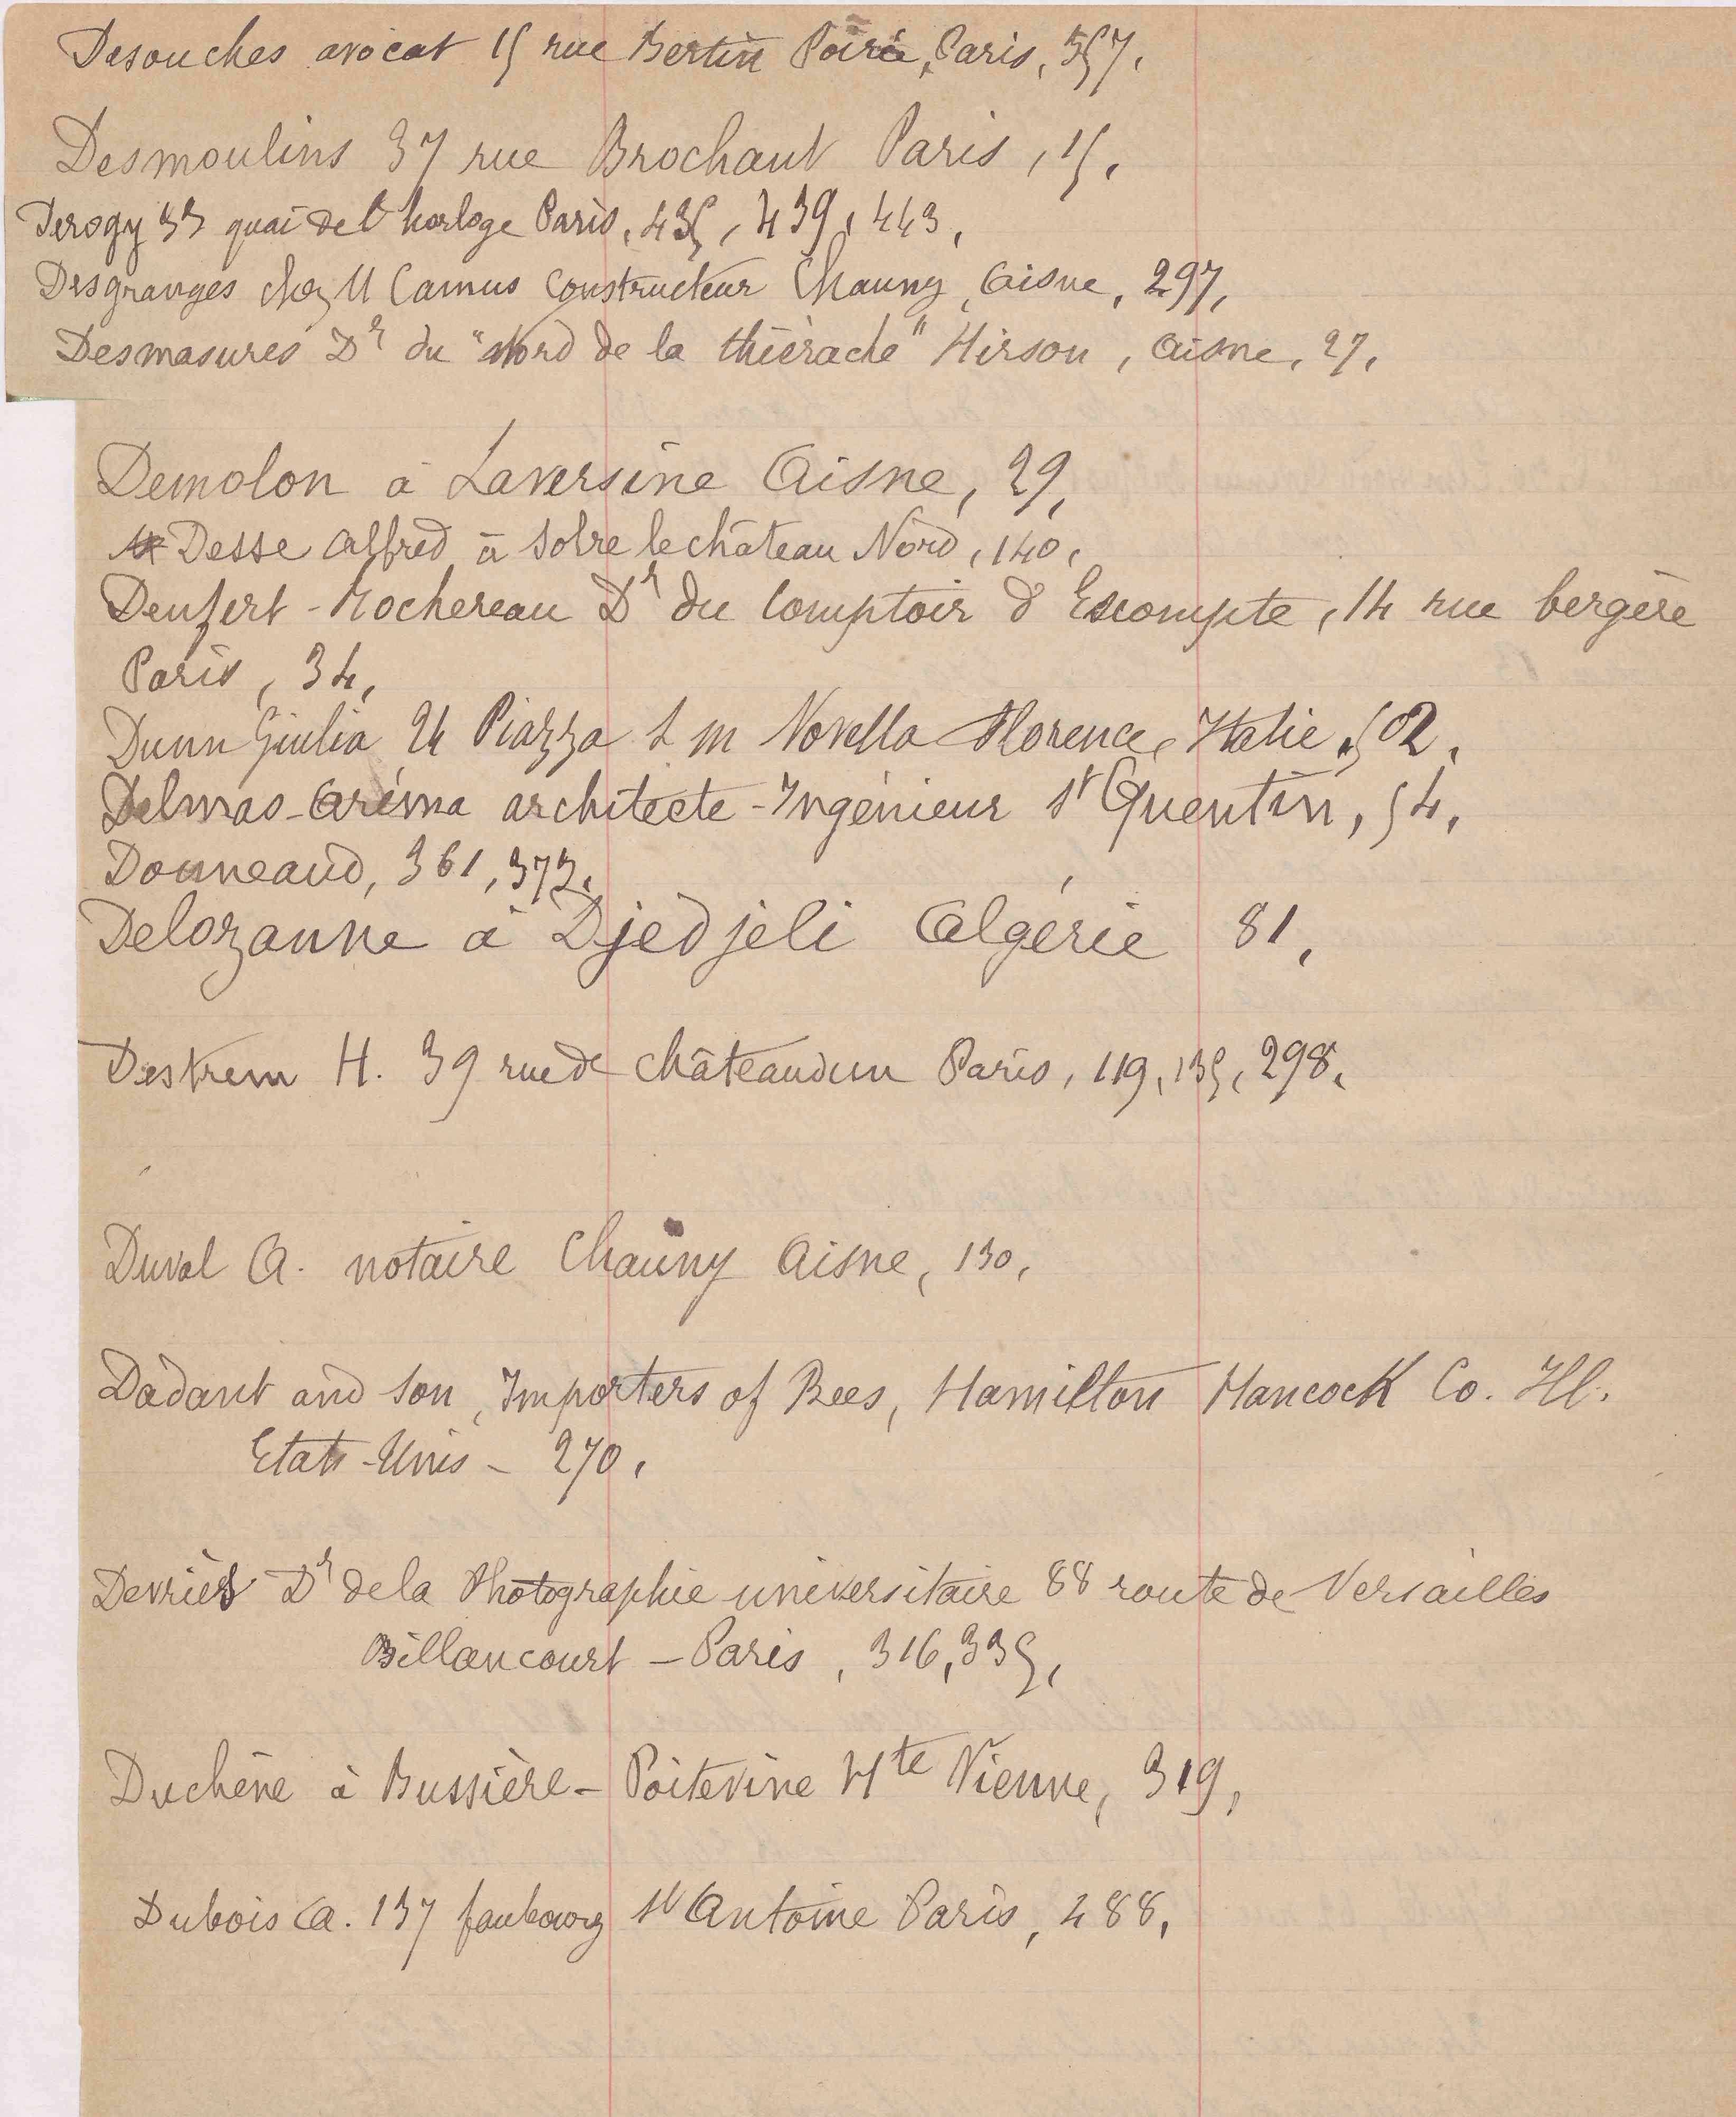 Desouches avocat 15 rue Bertin Poirée, Paris, 557,
Desmoulins 37 rue Brochant Paris, 15,
Derogy 33 quai de l'horloge Paris, 435, 439, 443,
Desgranges chez M Camus constructeur Chauny, Aisne, 297,
Desmasures Dr du "Nord de la thiérache" Hirson, Aisne, 27,
Demolon à Laversine Aisne, 29,
Desse Alfred à Solre le château Nord, 140,
Denfert-Rochereau Dr du Comptoir d'Escompte, 14 rue bergère
Paris, 34,
Dunn Giulia 24 Piazza S M Novella Florence, Italie, 502,
Delmas-Aréma architecte-Ingénieur St Quentin, 54,
Donneaud, 361, 373,
Delozanne à Djedjeli Algérie 81,
Destrem H. 39 rue de Châteaudun Paris, 119, 135, 298,
Duval A. notaire Chauny Aisne, 130,
Dadant and Son, Importers of Bees, Hamilton Hancock Co. Ill.
Etats-Unis - 270,
Devriès Dr de la Photographie universitaire 88 route de Versailles
Billancourt - Paris, 316, 335,
Duchêne à Bussière-Poitevine Hte Vienne, 319,
Dubois A. 137 faubourg St Antoine Paris, 488,